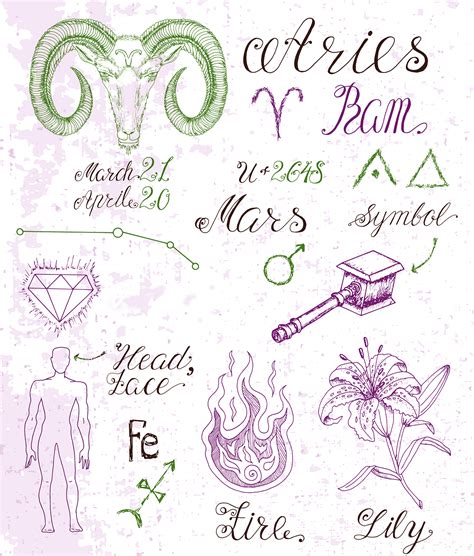 Aries
Ram.
March 21
Aprile 20
U+2648
Mars
Symbol
Head,
Face
Fe
Fire
Lily